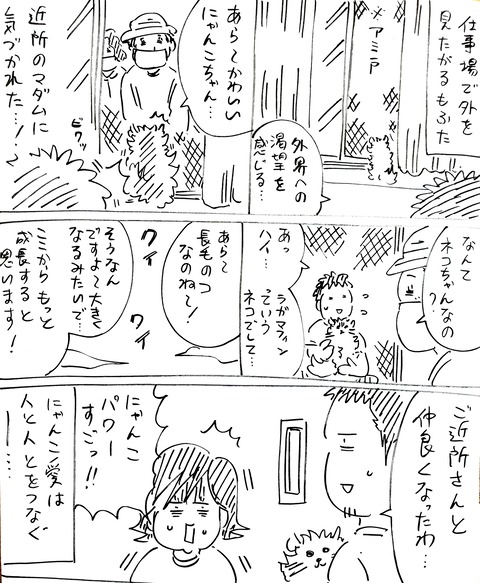 仕事場で外を
見たがるもふた
※アミ戸
外界への
渇望を
感じる…
あら〜かわいい
にゃんこちゃん…
近所のマダムに
気づかれた…!
ビクッ
なんて
ネコちゃんなの
?
あっ
ハイ…
ラガマフィン
っていう
ネコでして…
あら〜
長毛のコ
なのね〜!
ワイ
ワイ
そうなん
ですよ〜大きく
なるみたいで…
ここからもっと
成長すると
思います!
ご近所さんと
仲良くなったわ…
にゃんこ
パワー
すごっ!!
にゃんこ愛は
人と人とをつなぐ
ー…